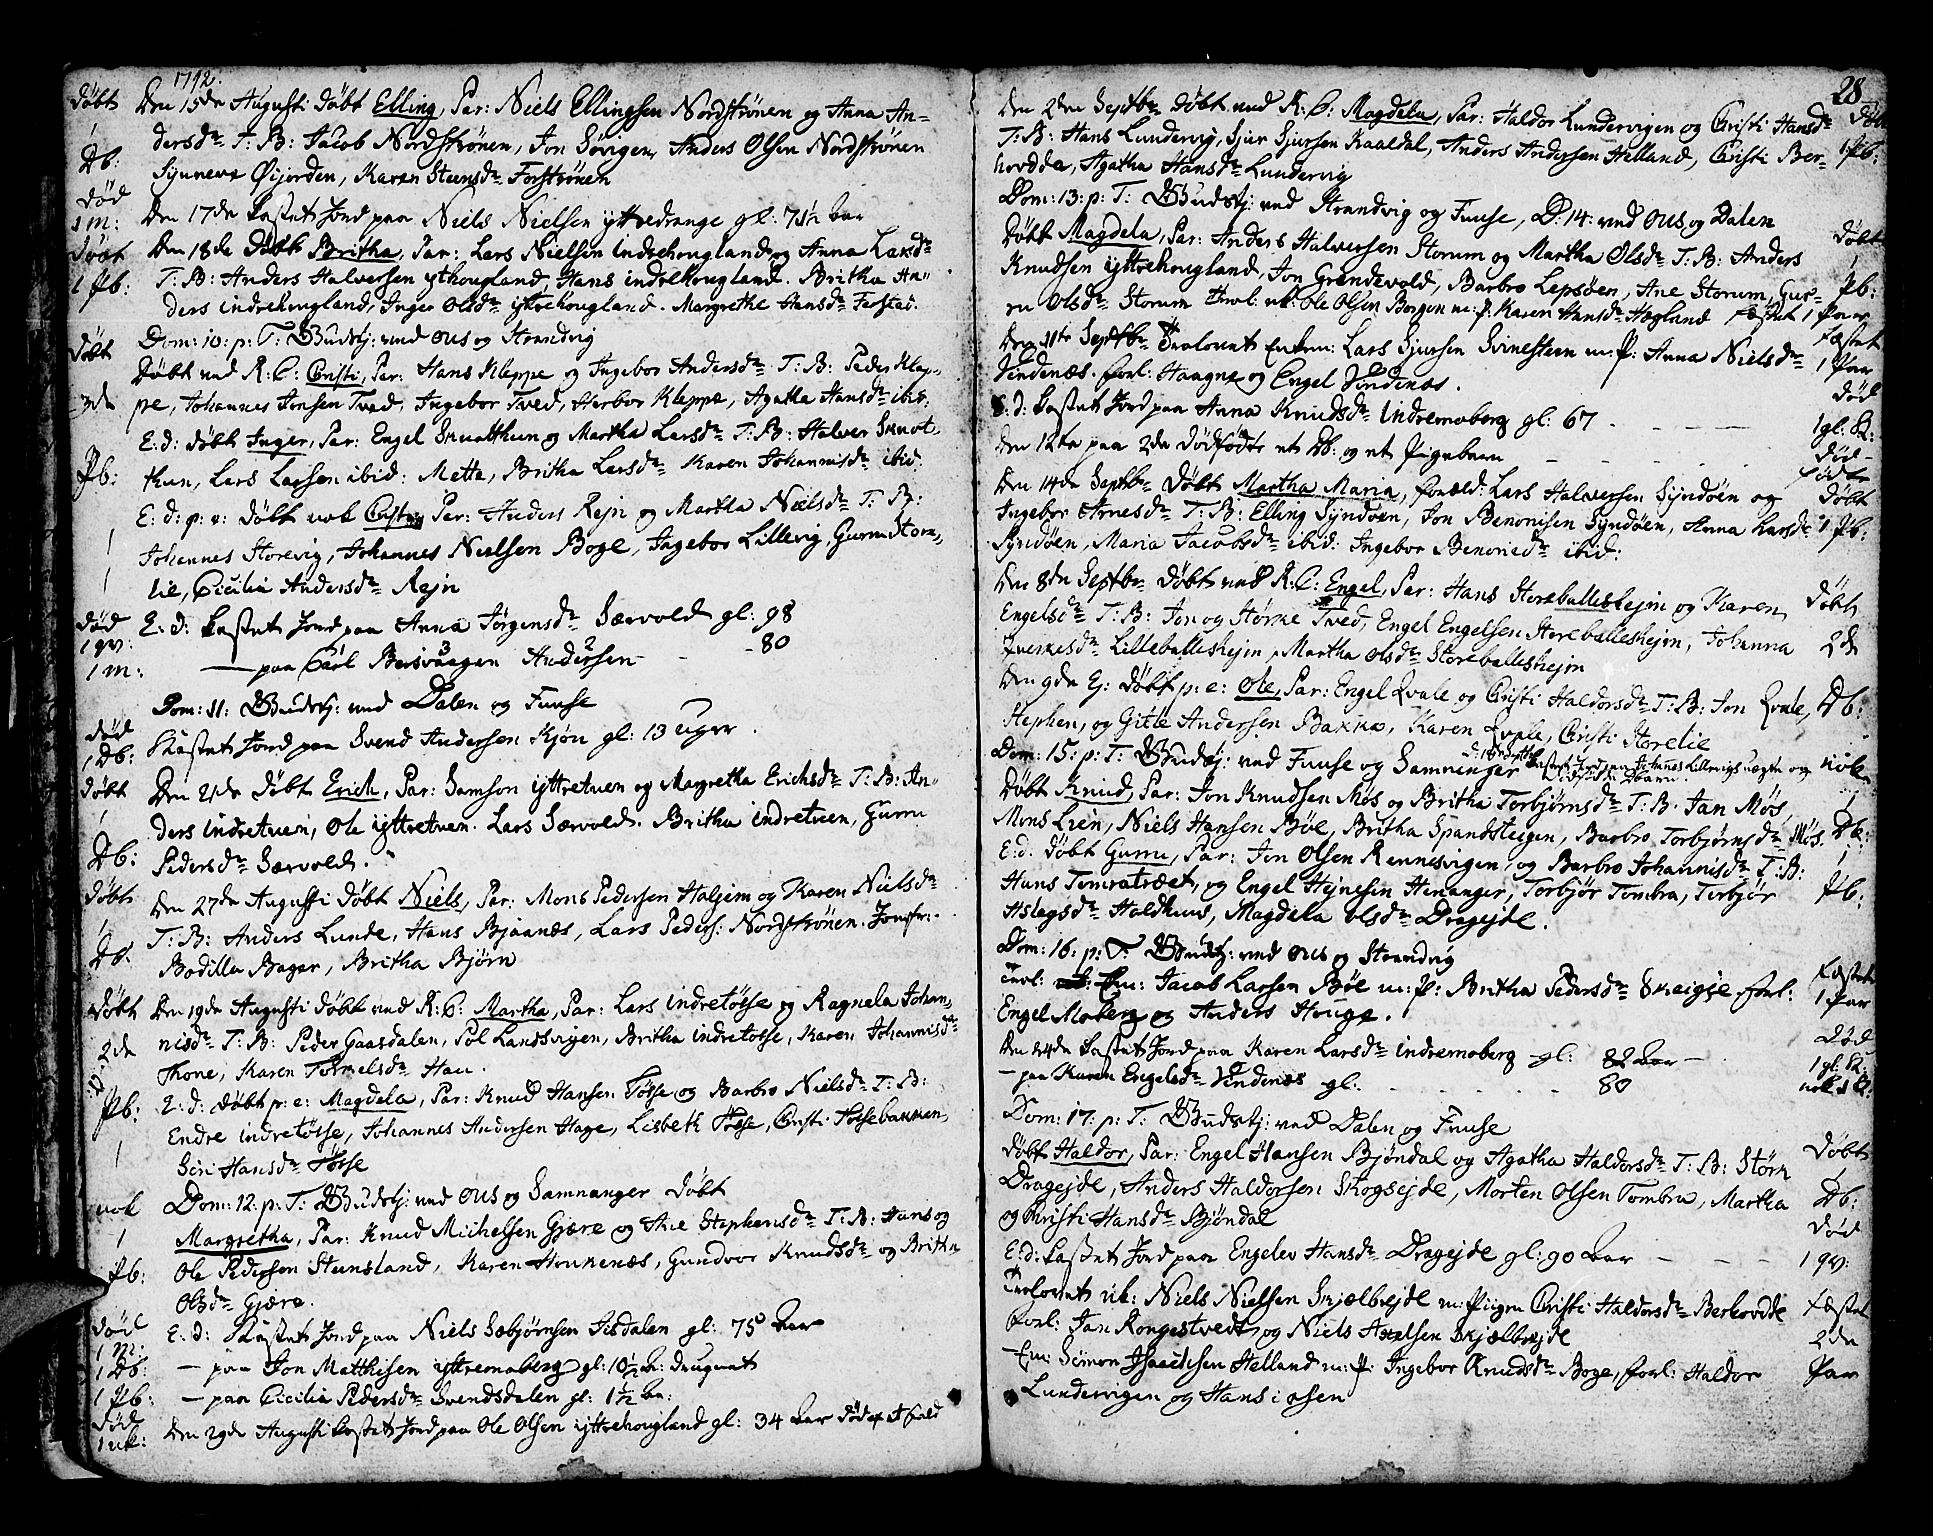 1792.
døbt Den 15de Augusti døbt Elling, Par: Niels Ellingsen Nordstrønen og Anna An-
1 dersdr T: B: Jacob Nordstrønen, Jon Sørigen, Anders Olsen Nordstrønen
Db: Synneve Øijorden, Karen Steensdr Forstrønen
død
1 m: Den 17de Kastet Jord paa Niels Nielsen yttredrange gl: 71½ Aar
døbt Den 18de døbt Britha, Par: Lars Nielsen indrehougland og Anna Larsdr
1 Pb: T: B: Anders Halversen ythougland, Hans indrehougland. Britha An-
ders indrehougland, Inger Olsdr yttrehougland. Margrethe Hansdr Ferstad.
Dom: 10: p: T: Gudstj: ved Ous og Strandvig
døbt Døbt ved K: C: Christi, Par: Hans Kleppe og Ingebor Andersdr T: B: Peder Klep-
3de pe, Johannes Jonsen Tved, Ingebor Tved, Herbor Kleppe, Agatha Hansdr ibid.
E: d: døbt Inger, Par: Engel Skuatthun og Martha Larsdr T: B: Halver Skuot-
Pb: thun, Lars Larsen ibid: Metta, Britha Larsdr Karen Johannisdr ibid.
E: d: p: e: døbt nok Par: Anders Rejn og Martha Nielsdr T: B:
1 Johannes Storevig, Johannes Nielsen Boge, Ingebor Lillevig, Gurri Store-
1 lie, Cicilia Andersdr Rejn
død E: d: Kastet Jord paa Anna Jørgensdr Særvold gl: 98
1 qv:
1 m: — paa Carl Beisvaagen Andersen - - 80
Dom: 11: Gudstj: ved Dalen og Fuuse
død
1 Db: Kastet Jord paa Svend Andersen Kjøn gl: 13 Uger.
døbt Den 21de døbt Erich, Par: Samson yttretuen og Margretha Erichsdr T: B: An-
1 ders indretuen, Ole yttretuen. Lars Særvold. Britha indretuen, Gurru
Db: Pedersdr Særvold.
døbt Den 27de Augusti døbt Niels, Par: Mons Pedersen Halgim og Karen Nielsdr
1 T: B: Anders Lunde, Hans Bjaanæs, Lars Peders: Nordstrønen. Jomfr:
Db. Bodilla Bager, Britha Bjørn
døbt Den 19de Augusti døbt ved K: C: Martha, Par: Lars indretøsse og Ragnela Johan-
2de nisdr T: B: Peder Gaasdalen, Pol Landsvigen, Britha indretøsse, Karen Johannisdr
Thone, Karen Tormelsdr Hau.
Pb: E: d: døbt p: e: Magdela, Par: Knud Hansen Tøsse og Barbro Nielsdr T: B:
Endre indretøsse, Johannes Andersen Hage, Lisbeth Tøsse, Christi Tøssebakken,
1 Siri Hansdr Tøsse
nok Dom: 12: p: T: Gudstj: ved Ous og Samnanger døbt
1 Margretha, Par: Knud Michelsen Gjære og Ane Stephensdr T: B: Hans og
Pb: Ole Pedersen Steensland, Karen Houkenæs, Gundvor Knudsdr og Britha
Olsdr Gjære.
død E: d: Kastet Jord paa Niels Sæbjørnsen Tisdalen gl: 75 Aar
1 m:
1 Db: — paa Jon Matthisen yttremoberg gl: 10½
1 Pb: — paa Cicilia Pedersdr Svendsdalen gl: 1½ Aar:
død
1 uk: Den 29de Augusti Kastet Jord paa Ole Olsen yttrehougland gl: 34 Aar død
28
Den 2den Septbr døbt ved K: C: Magdela, Par: Haldor Lundervigen og Christi Hansdr døbt
T: B: Hans Lundervig, Sjur Sjursen Kaaldal, Anders Andersen Helland, Christi Ber- 1 Pb:
hovdda, Agatha Hansdr Lundervig
Dom: 13: p: T: Gudstj: ved Strandvig og Fuuse, D: 14: ved Ous og Dalen
Døbt Magdela, Par: Anders Halversen Storum og Martha Olsdr T: B: Anders døbt
Knudsen yttrehougland, Jon Grendevold, Barbro Lepsøen, Ane Storum, Gur- 1 Pb:
ru Olsdr Storum Trol: uk: Ole Olsen Borgen m: p: Karen Hansdr Hægland fæstet 1 Par
Den 11te Septbr Trolovet Enkem: Lars Sjursen Svinestern m: P: Anna Nielsdr fæstet
Vindenæs. forl: Haagne og Engel Vindenæs. 1 Par
E. d: Kastet Jord paa Anna Knudsdr indremoberg gl: 67 - - - død
1 gl: K:
Den 12te paa 2de dødfødte et Db: og et Pigebarn - - - død-
fødte
Den 14de Septbr døbt Martha Maria, foræld: Lars Halversen Syndøen og døbt
Ingebor Arnesdr T: B: Elling Syndøen, Jon Benonisen Syndøen, Anna Larsdr 1 Pb:
Syndøen, Maria Jacobsdr ibid: Ingebor Benonisdr ibid:
Den 8de Septbr døbt ved K: C: Engel, Par: Hans Storeballeshejm og Karen døbt
Engelsdr T: B: Jon og Størke Tved, Engel Engelsen Storeballeshejm, Johanna 2de
Lilleballeshejm, Martha Olsdr Storeballeshejm
Den 9de Ej: døbt p: e: Ole, Par: Engel Qvale og Christi Haldorsdr T: B: Jon Qvale, Db:
Stephen, og Gitle Andersen Bakke, Karen Qvale, Christi Storelie
Dom: 15: p: T: Gudstj: ved Fuuse og Samninger
Døbt Knud, Par: Jon Knudsen Møs og Britha Torbjørnsdr T: B. Jan Møs, nok
Mons Lien, Niels Hansen Bøe, Britha Spandsteigen, Barbro Torbjørnsdr Møs. 1 Db:
E: d: døbt Gurru, Par: Jon Olsen Rennesvigen, og Barbro Johannisdr T: B: 1
Hans Temratræet, og Engel Hejnesen Henanger, Torbjør Tombra, Torbjør Pb:
Aslagsdr Haldhuus, Magdela Olsdr Dragejde.
Dom: 16: p: T: Gudstj: ved Ous og Strandvig
Trol: Em: Jacob Larsen Bøe m: P: Britha Pedersdr Skeigse forl: fæstet
Engel Moberg og Anders Houge. 1 Par
Den 24de Kastet Jord paa Karen Larsdr indremoberg gl: 82 Aar - Død
1 gl: K:
— paa Karen Engelsdr Vindenæs gl: - - - 80 nok 1 K:
Dom: 17: p: T: Gudstj: ved Dalen og Fuuse
døbt Haldor, Par: Engel Hansen Bjøndal og Agatha Haldorsdr T: B: Størk døbt
Dragejde, Anders Haldorsen Skogsejde, Morten Olsen Tombra, Martha 1 Db:
og Christi Hansdr Bjøndal
E: d: Kastet Jord paa Engelev Hansdr Dragejde gl: 90 Aar - - - død
1 qv:
Trolovet uk: Niels Nielsen Skjælbrejde m: Pigen Christi Haldorsdr Berhovdde fæstet
forl: Jan Rongestvedt, og Niels Skjælbrejde 2de
Em: Simon Isaachsen Helland m: P: Ingebor Knudsdr Boge, forl: Haldor Par
Lundervigen og Hans i osen